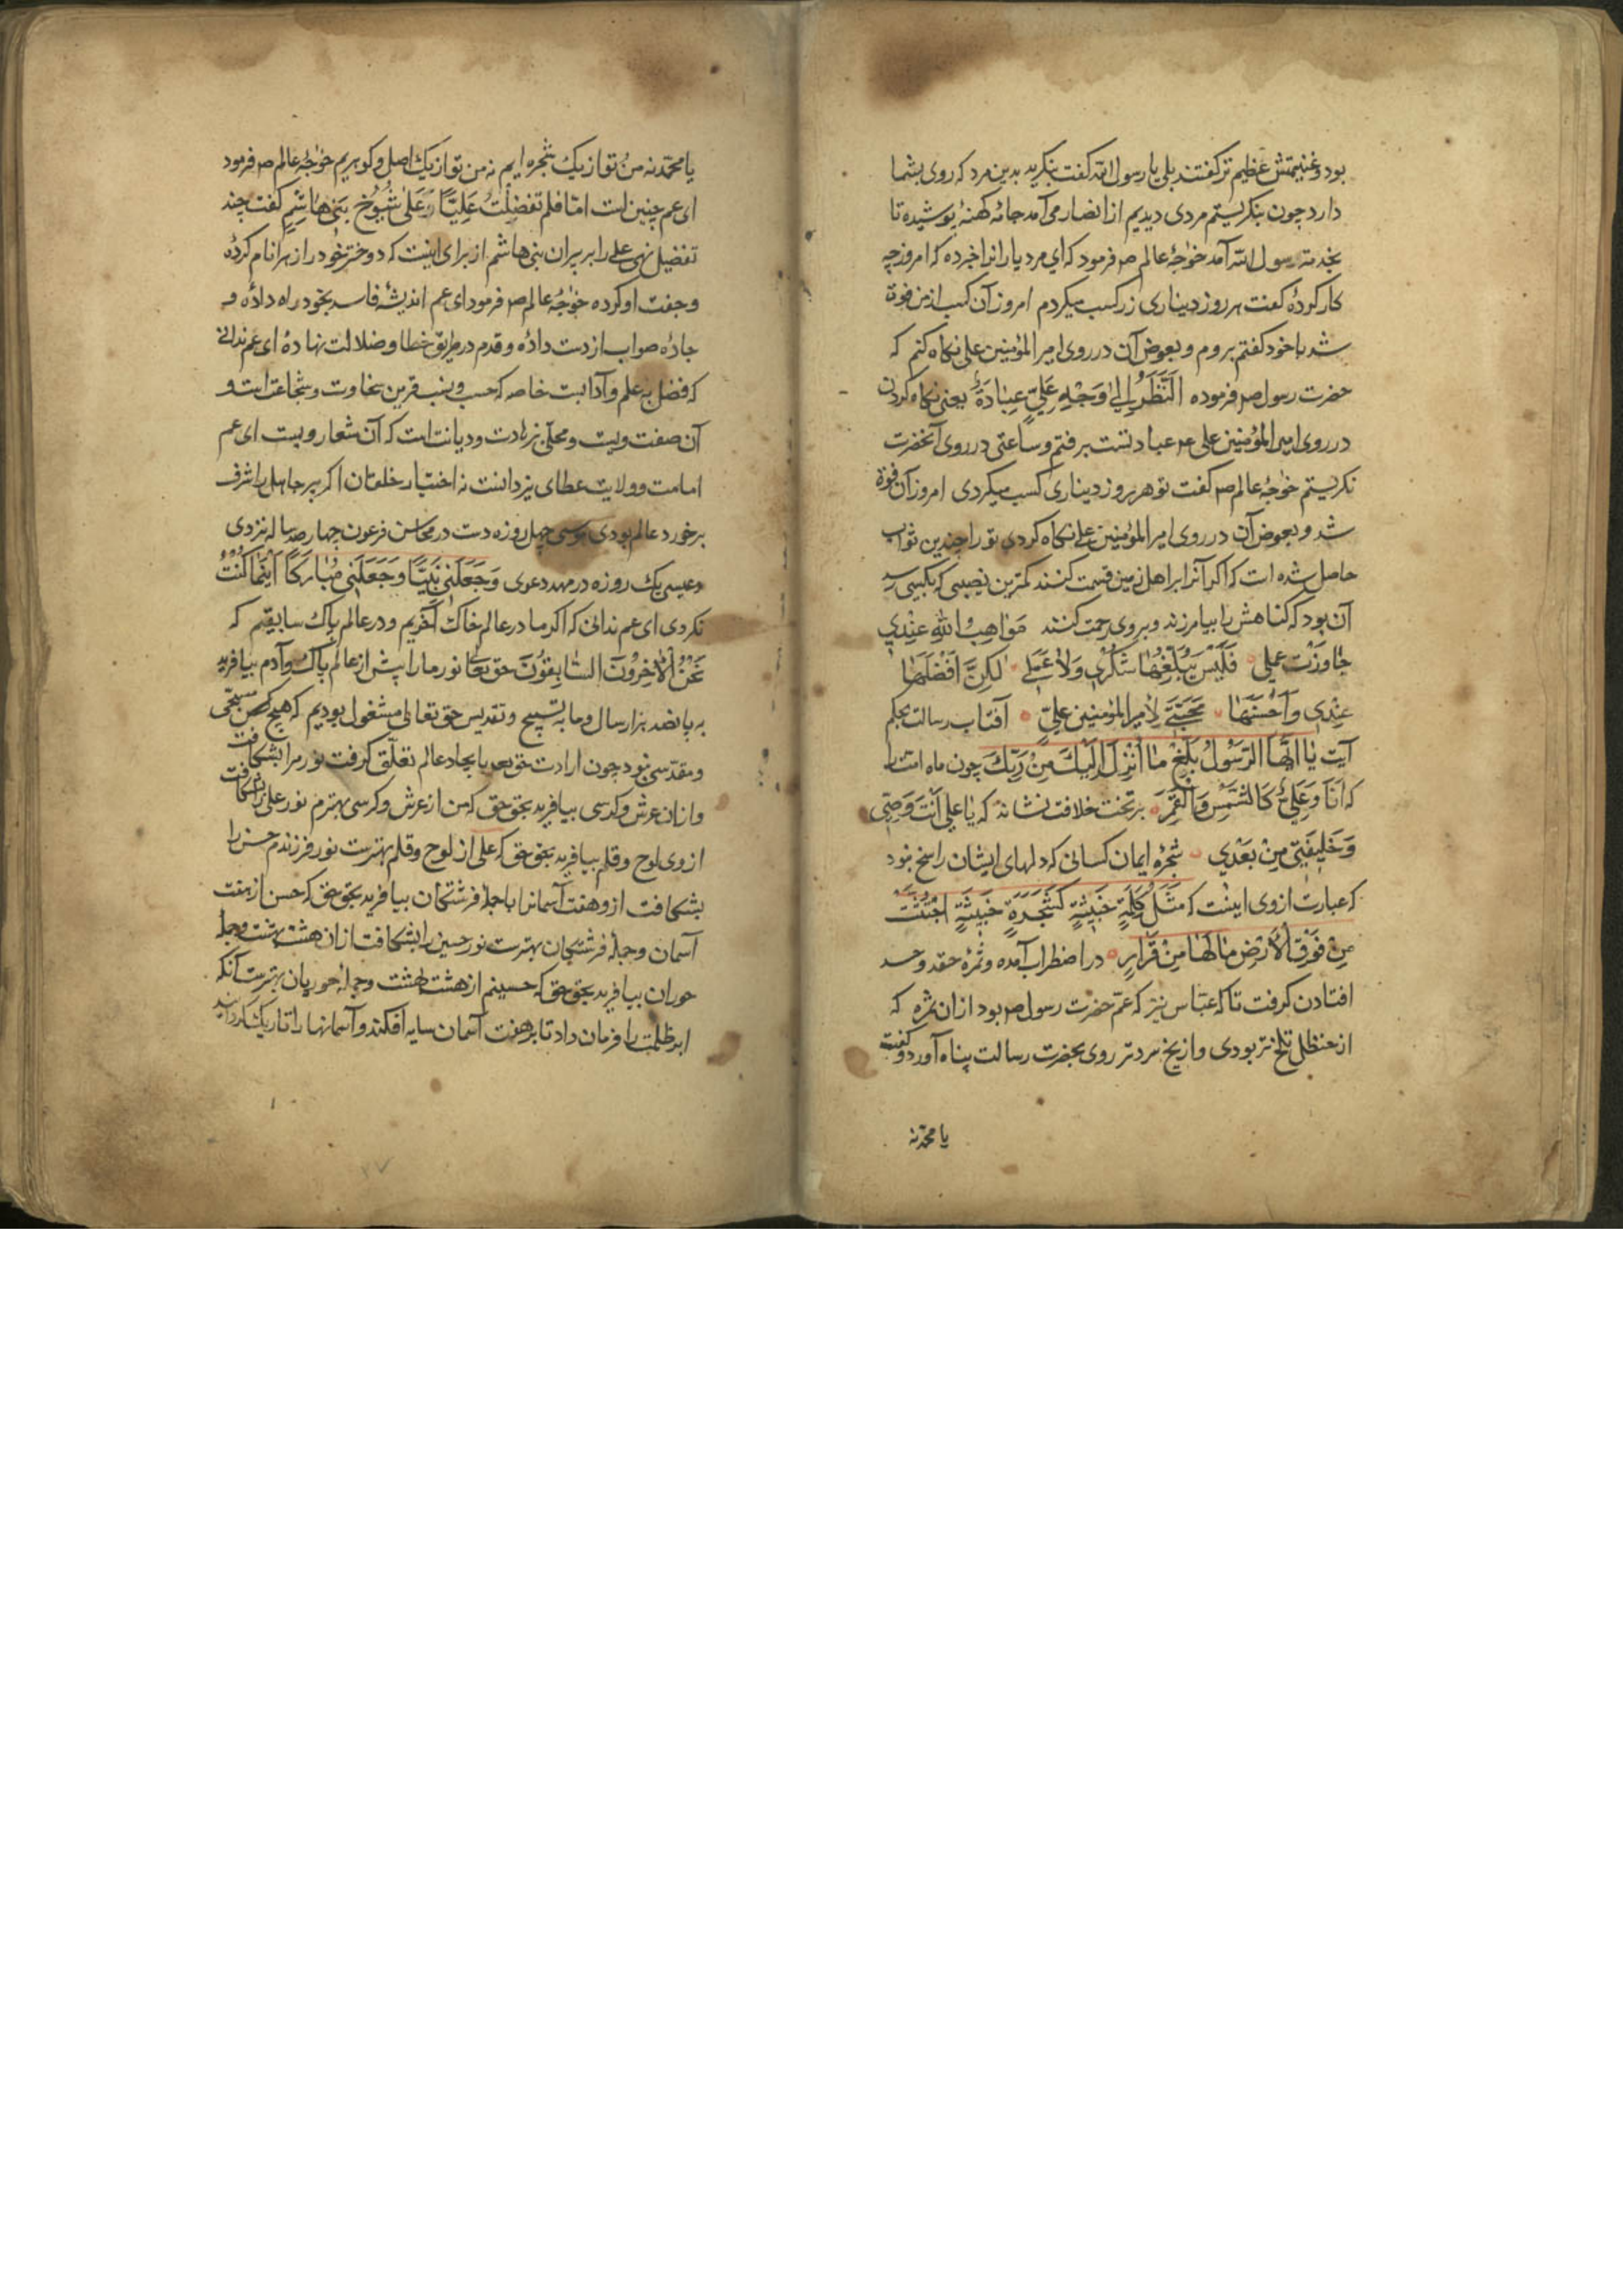 بود و غنیمتش عظیم تر کفتند بلی یا رسول الله کفت بنکرید بدین مرد که روی بشما
دارد چون بنکریستم مردی دیدیم از انصار می آمد جامهٔ کهنهٔ پوشیده تا
بخدمت رسول الله آمد خواجهٔ عالم ص فرمود که ای مرد یارانرا خبر ده که امروز چه
کار کردهٔ کفت هر روز دیناری زر کسب میکردم امروز آن کسب از من فوة
شد با خود کفتم بروم و بعوض آن در روی امیر المؤمنین علی نکاه کنم که
حضرت رسول ص فرموده اَلنَّظَرُ اِلیٰ وَجْهِ عَلِیٍّ عِبٰادَةٌ یعنی نکاه کردن
در روی امیر المؤمنین علی ع عبادتست برفتم و ساعتی در روی آنحضرت
نکریستم خواجهٔ عالم ص کفت تو هر روز دیناری کسب میکردی امروز آن فوة
شد و بعوض آن در روی امیر المؤمنین علی نکاه کردی تو را چندین ثواب
حاصل شده است که اکر آنرا بر اهل زمین قسمت کنند کمترین نصیبی که بکسی رسد
آن بود که کناهش را بیامرزند و بر وی رحمت کنند مَوٰاهِبُ اللهِ عِنْدِی
جٰاوَزَتْ عملی فَلَیْسَ یَبْلُغُهٰا شُکْرِی وَلاٰ عَمَلِی لٰکِنَّ اَفْضَلَهٰا
عِنْدِی وَاَحْسَنَهٰا مَحَبَّتِی لِاَمیرِ المؤمنین عَلِیٍّ آفتاب رسالت بحکم
آیت یٰا اَیُّهَا الرَّسُولُ بَلِّغْ مٰا اُنْزِلَ اِلَیْکَ مِنْ رَبِّکَ چون ماه امتثال
که اَنَا وَعَلِیٌّ کَالشَّمْسِ وَالْقَمَرِ بر تخت خلافت نشاند که یٰا عَلِی اَنْتَ وَصِیّی
وَخَلِیفَتِی مِنْ بَعْدِی شجرهٔ ایمان کسانی که دلهای ایشان راسخ نبود
که عبارت ازوی اینست که مَثَلُ کَلِمَةٍ خَبِیثَةٍ کَشَجَرَةٍ خَبِیثَةٍ اجْتُثَّتْ
مِنْ فَوْقِ الْاَرْضِ مٰا لَهٰا مِنْ قَرٰارٍ در اضطراب آمده و ثمرهٔ حقد و حسد
افتادن کرفت تا که عبّاس نیز که عمّ حضرت رسول ص بود از ان ثمره که
از حنظل تلخ تر بودی و از یخ سردتر روی بحضرت رسالت پناه آورد و کفت
یا محمّد نه
یا محمّد نه من و تو از یک شجره ایم نه من و تو از یک اصل و کوهریم خواجهٔ عالم ص فرمود
ای عم چنین است امّا فلم تفضّلتَ عَلِیًّا عَلیٰ شُیُوخِ بَنِی هٰاشِمٍ کفت چند
تفضیل نهی علی را بر پیران بنی هاشم از برای اینست که دختر خود را زهرا نام کردهٔ
و جفت او کرده خواجهٔ عالم ص فرمود ای عم اندیشهٔ فاسد بخود راه دادهٔ و
جادهٔ صواب از دست دادهٔ و قدم در طریق خطا و ضلالت نهادهٔ ای عم ندانی
که فضل بعلم و آدابست خاصه که حسب و نسب قرین سخاوت و شجاعت است و
آن صفت ویست و محلّی زهادت و دیانت است که آن شعار ویست ای عم
امامت و ولایت عطای یزدانست نه اختیار خلقان اکر پیر جاهل را شرف
بر خورد عالم بودی موسی چهل روزه دست در محاسن فرعون چهار صد ساله نزدی
و عیسی یک روزه در مهد دعوی وَجَعَلَنِی نَبِیًّا وَجَعَلَنِی مُبٰارَکًا اَیْنَمٰا کُنْتُ
نکردی ای عم ندانی که اکر ما در عالم خاک آخریم و در عالم پاک سابقیم که
نَحْنُ الْاٰخِرُونَ السّٰابِقُونَ حق تعالی نور ما را پیش از عالم پاک و آدم بیافرید
به پانصد هزار سال و ما به تسبیح و تقدیس حق تعالی مشغول بودیم که هیچ کس مسبّحی
و مقدّسی نبود چون ارادت حق بعد بایجاد عالم تعلّق کرفت نور مرا بشکافت
و از ان عرش و کرسی بیافرید بحق حق که من از عرش و کرسی بهترم نور علی را بشکافت
از وی لوح و قلم بیافرید بحق حق که علی از لوح و قلم بهترست نور فرزندم حسن را
بشکافت ازو هفت آسمانرا با جملهٔ فرشتکان بیافرید بحق حق که حسن از هفت
آسمان و جملهٔ فرشتکان بهترست نور حسین را بشکافت از ان هشت بهشت و جملهٔ
حوران بیافرید بحق حق که حسینم از هشت بهشت و جملهٔ حوریان بهترست آنکه
ابر ظلمت را فرمان داد تا بر هفت آسمان سایه افکند و آسمانها را تاریک کردانید